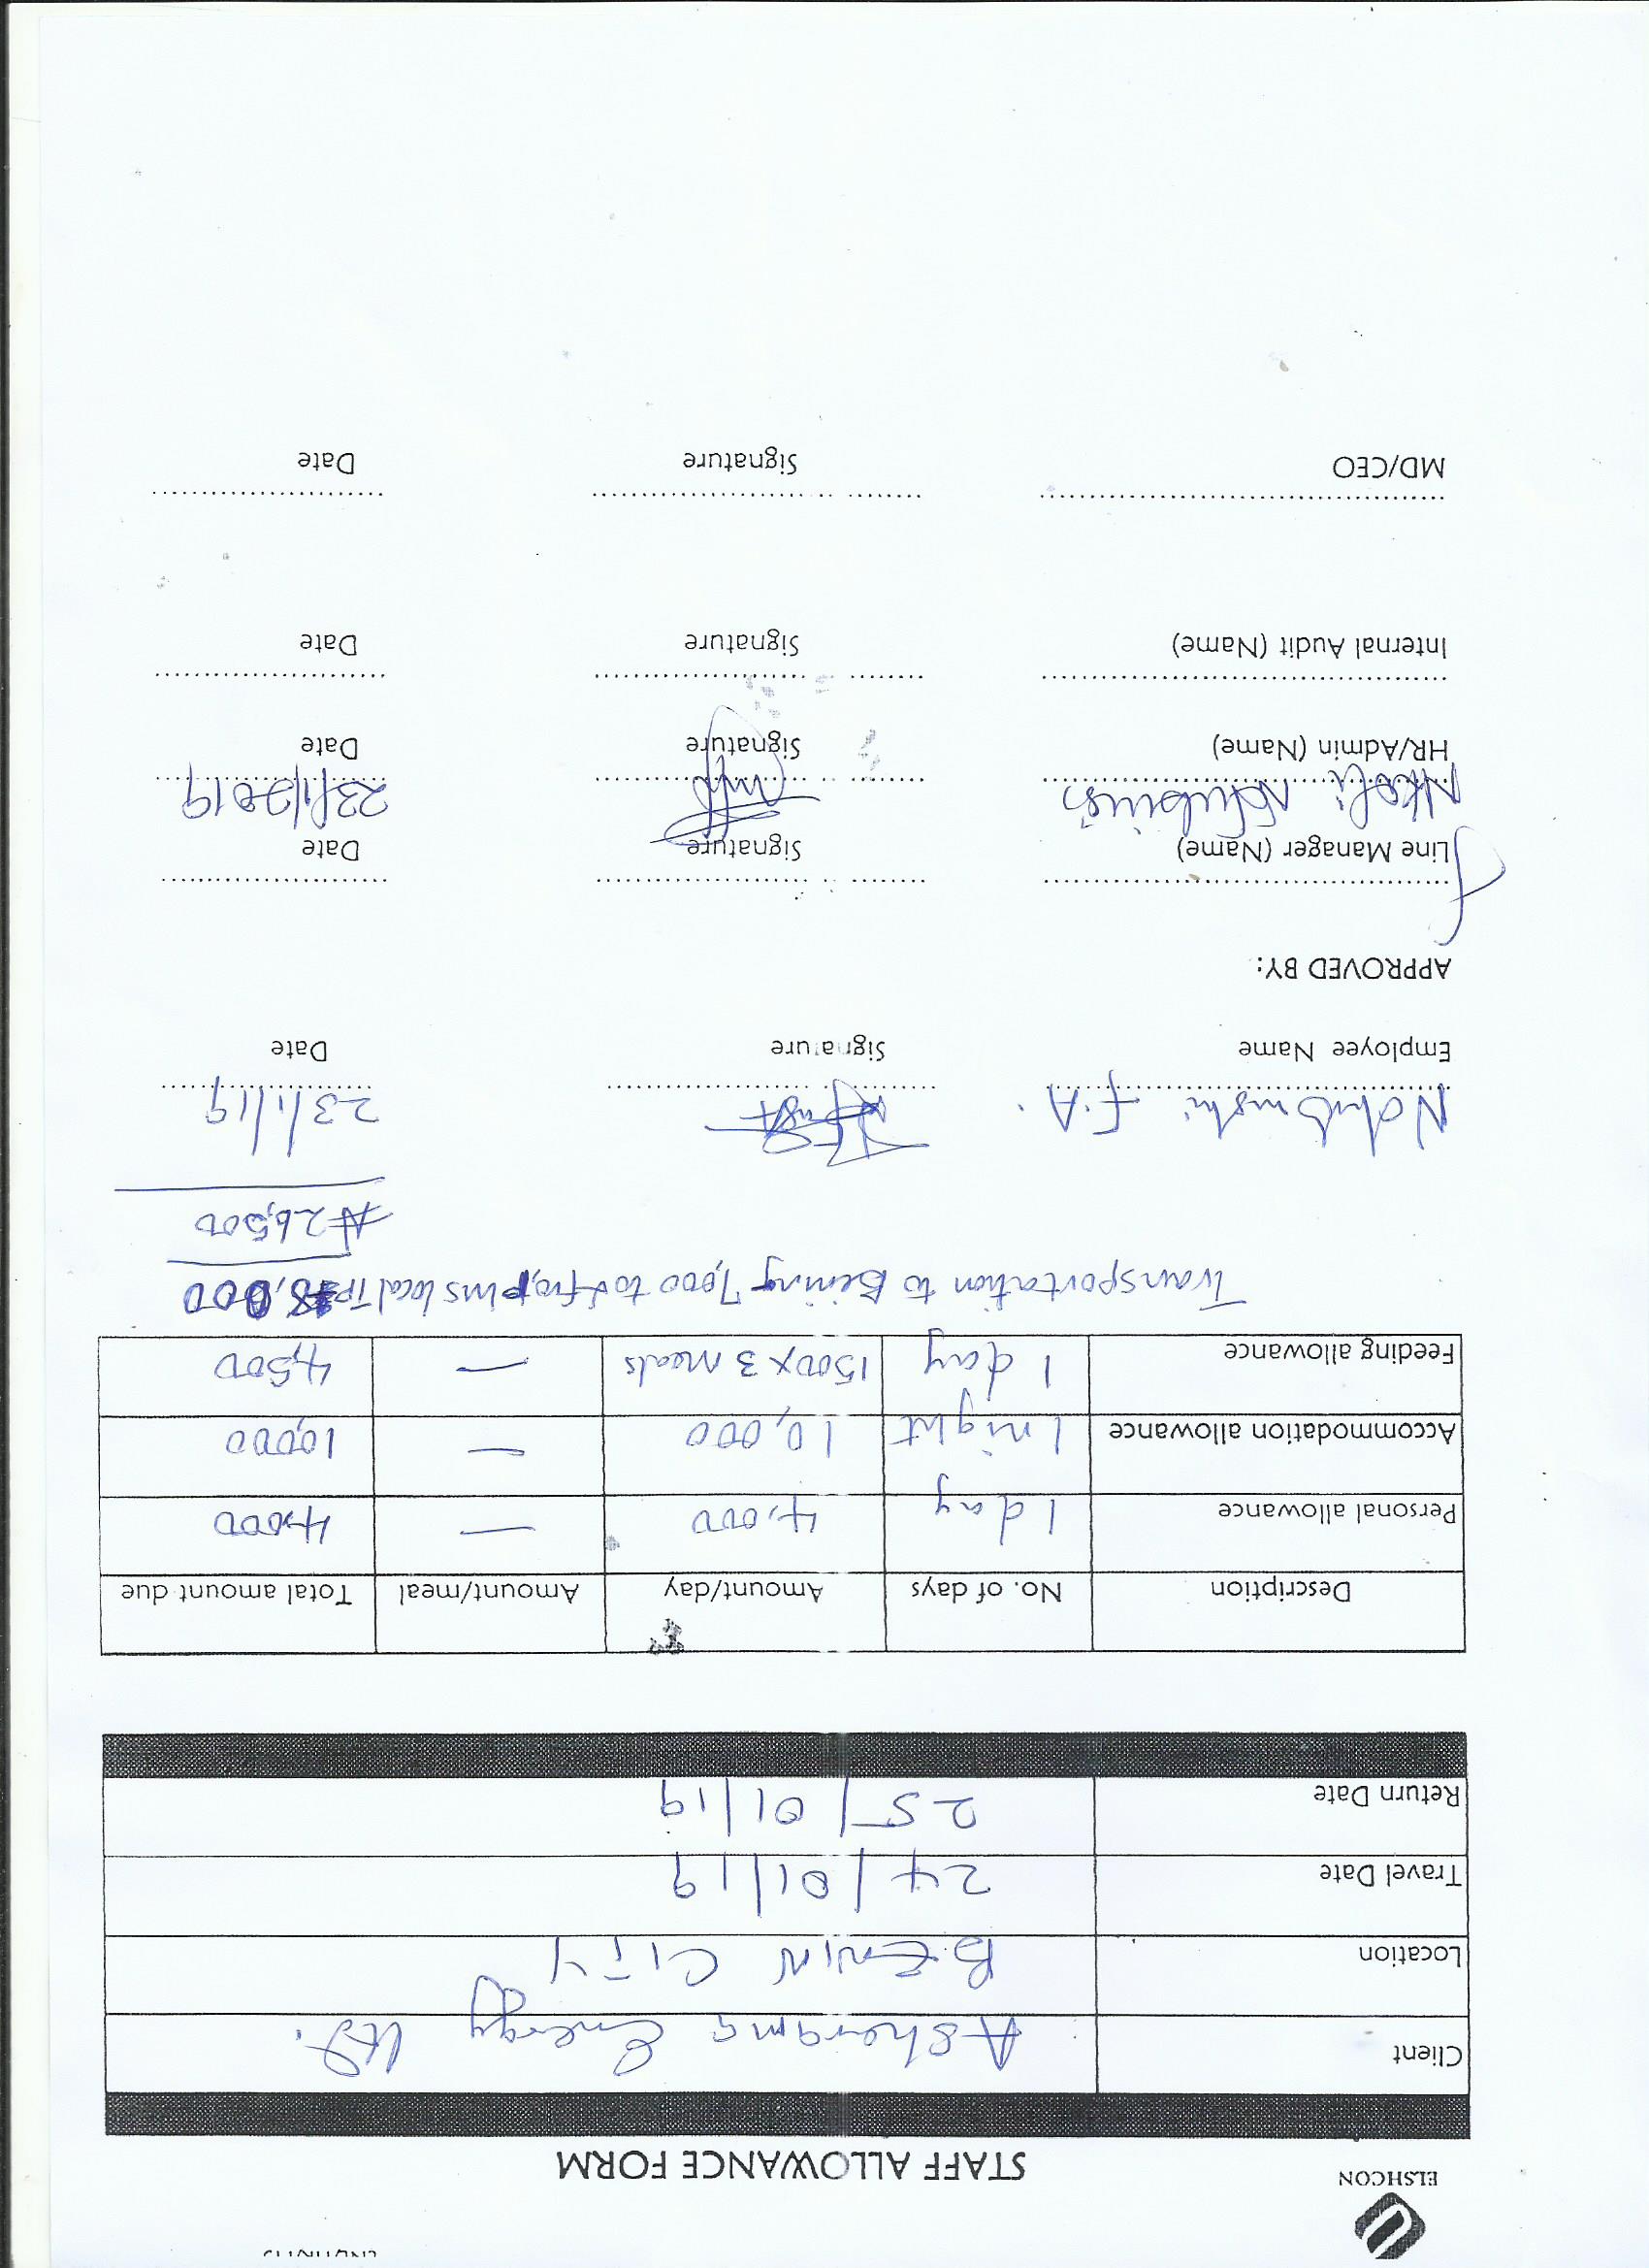 ELSHCON
STAFF ALLOWANCE FORM
Client Asherams Energy Ltd.
Location BENIN CITY
Travel Date 24/01/19
Return Date 25/01/19
Description No. of days Amount/day Amount/meal Total amount due
Personal allowance 1 day 4,000 — 4,000
Accommodation allowance 1 night 10,000 — 10,000
Feeding allowance 1 day 1500 x 3 meals — 4,500
Transportation to Bening 7,000 to & fro, plus local TP 8,000
₦26,500
F.A. 23/1/19
Employee Name Signature Date
APPROVED BY:
Line Manager (Name) Signature Date
Nkoli 23/1/2019
HR/Admin (Name) Signature Date
Internal Audit (Name) Signature Date
MD/CEO Signature Date